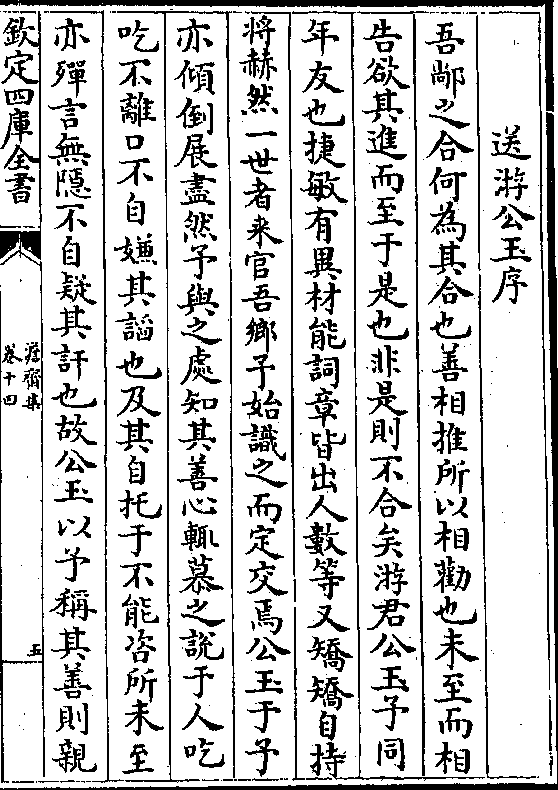 送游公玉序
吾鄅之合何為其合也善相推所以相勸也未至而相
告欲其進而至于是也非是則不合矣游君公玉予同
年友也捷敏有異材能詞章皆出人數等又矯矯自持
将赫然一世者来官吾鄉予始識之而定交焉公玉于予
亦傾倒展盡然予與之處知其善心輒慕之説于人吃
吃不離口不自嫌其謟也及其自托于不能咨所未至
亦殫言無隱不自疑其訐也故公玉以予稱其善則親
欽定四庫全書
卷十四
五